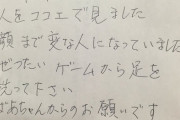 人をココエで見ました
顔まで変な人になっていました
ぜったい ゲームから足を
洗って下さい
ばあちゃんからのお願いです